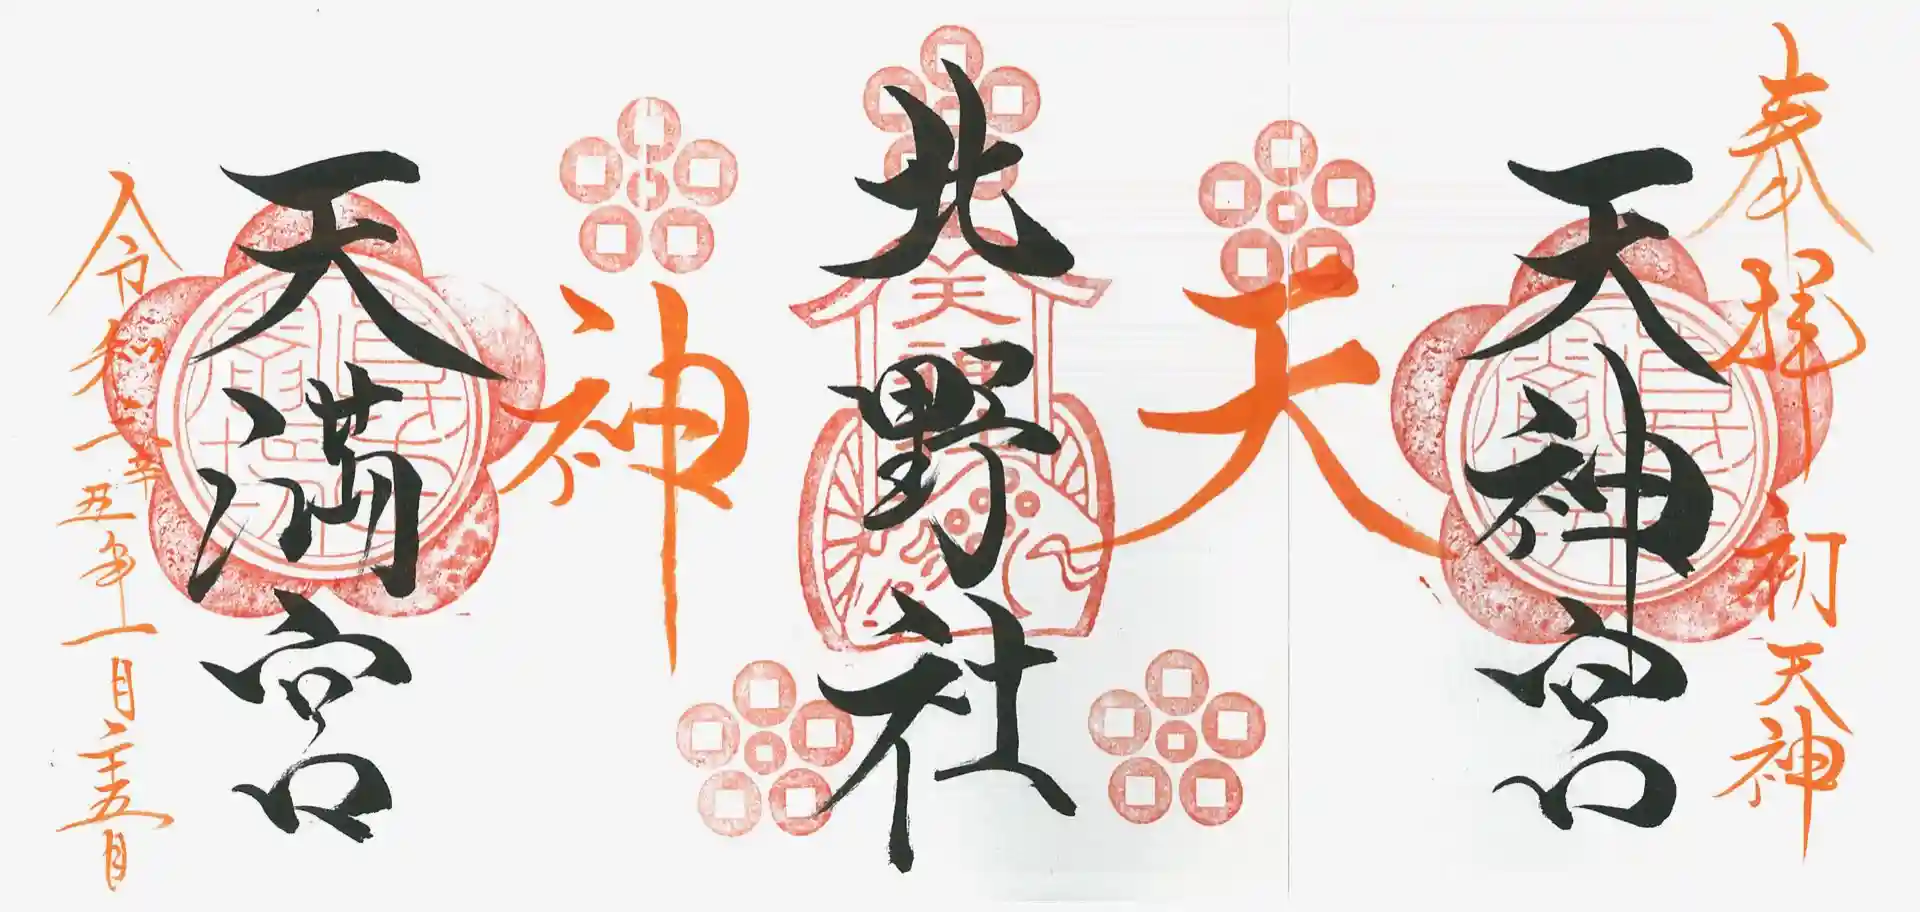 奉拝 初天神
天神宮
天
北野社
神
天満宮
令和三辛丑年一月二十五日